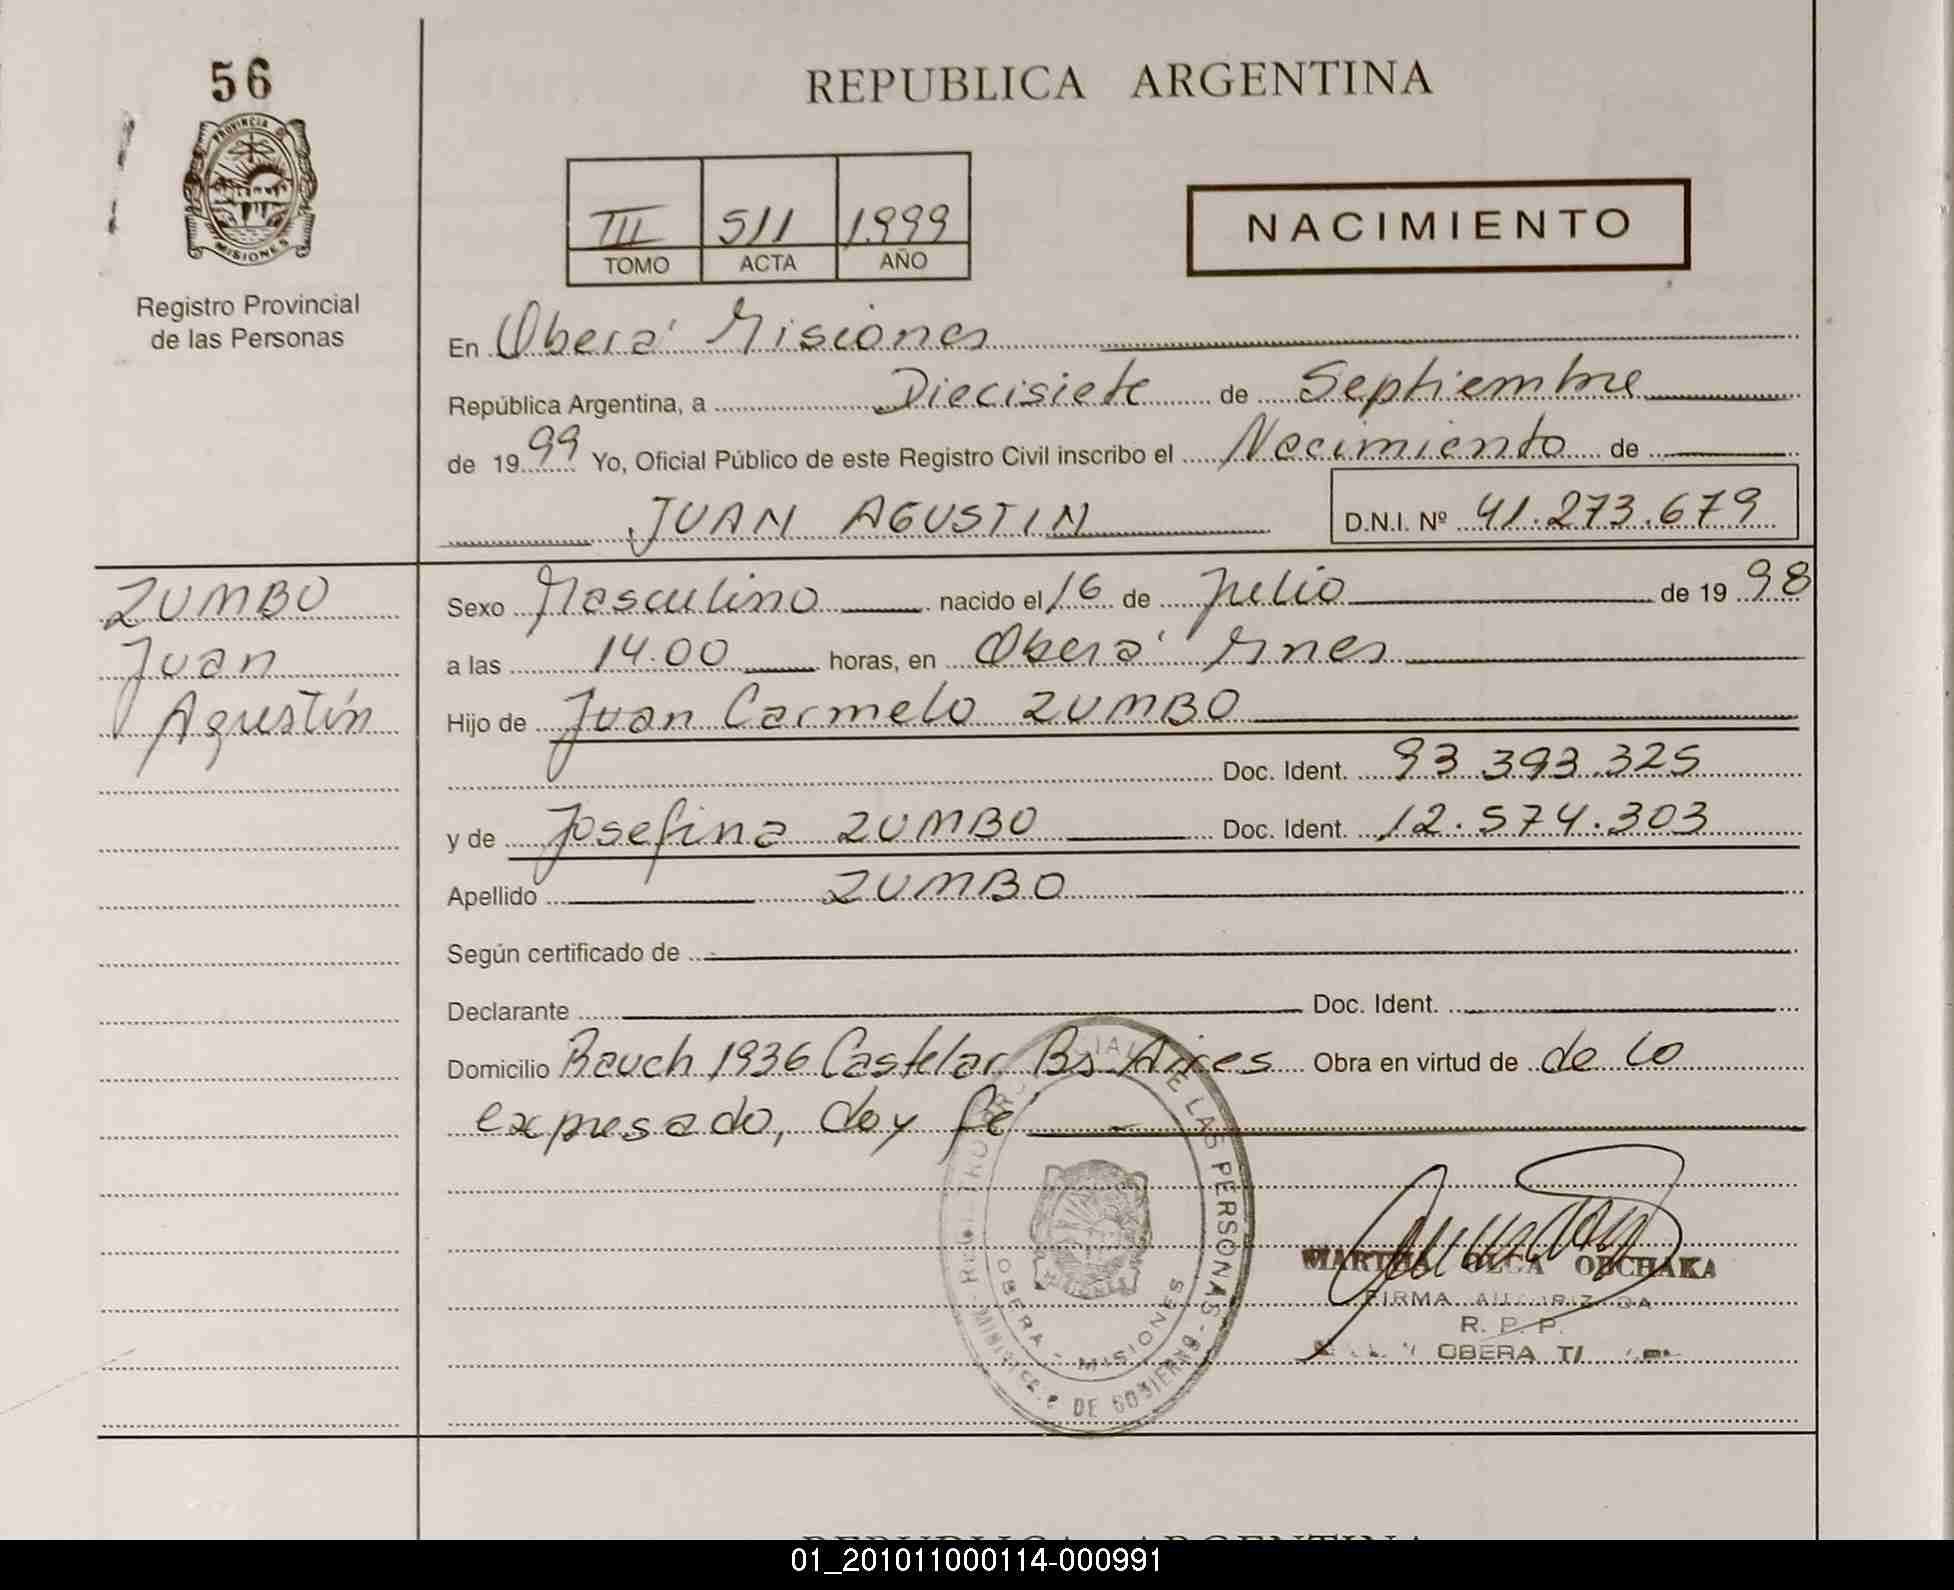 56
PROVINCIA DE
MISIONES
Registro Provincial
de las Personas
REPUBLICA ARGENTINA
III 511 1.999
TOMO ACTA AÑO
NACIMIENTO
En Oberá Misiones
República Argentina, a Diecisiete de Septiembre
de 19 99 Yo, Oficial Público de este Registro Civil inscribo el Nacimiento de
JUAN AGUSTIN D.N.I. Nº 41.273.679
ZUMBO
Juan
Agustín
Sexo Masculino nacido el 16 de Julio de 19 98
a las 14.00 horas, en Oberá Mnes
Hijo de Juan Carmelo ZUMBO
Doc. Ident. 93 393.325
y de Josefina ZUMBO Doc. Ident. 12.574.303
Apellido ZUMBO
Según certificado de
Declarante Doc. Ident.
Domicilio Rauch 1936 Castelar Bs. Aires Obra en virtud de de lo
expresado, doy fe
DE LAS PERSONAS - MINISTERIO DE GOBIERNO
OBERA - MISIONES
MARTHA OLGA OBCHAKA
FIRMA AUTORIZADA
R. P. P.
OBERA
REPUBLICA ARGENTINA
01_201011000114-000991